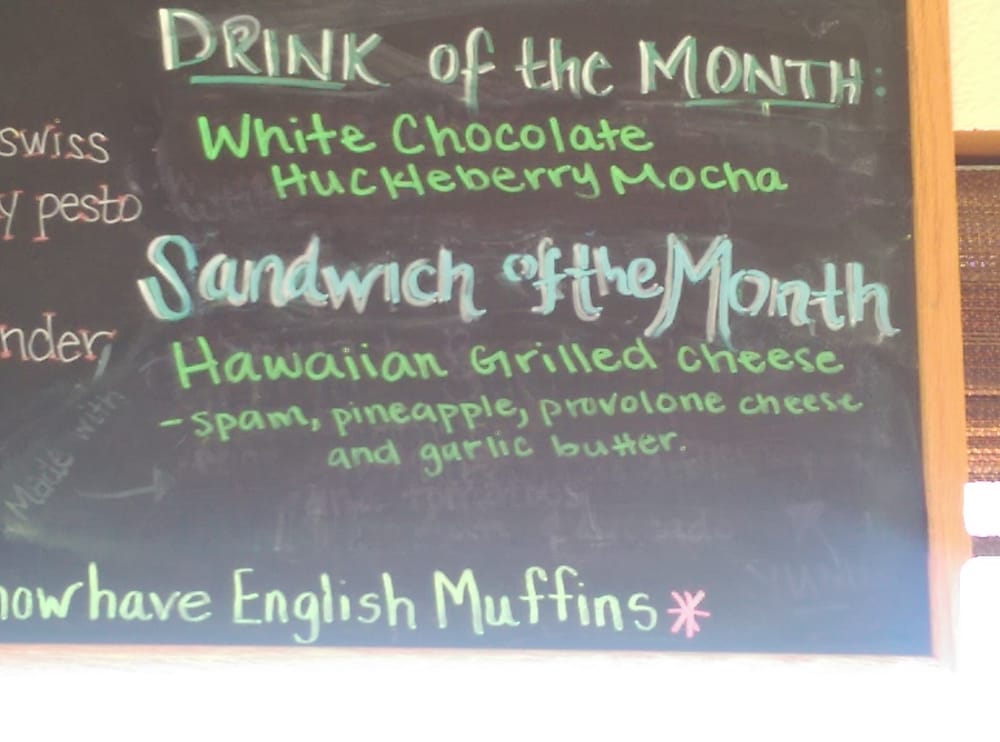 DRINK of the MONTH:
White Chocolate
Huckleberry Mocha
Sandwich of the Month
Hawaiian Grilled cheese
- spam, pineapple, provolone cheese
and garlic butter.
swiss
y pesto
nder,
Made with
now have English Muffins *